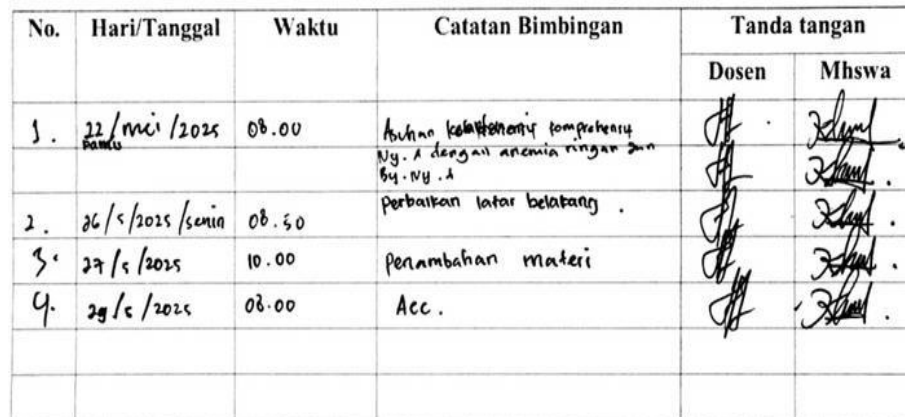 No. Hari/Tanggal Waktu Catatan Bimbingan Tanda tangan
Dosen Mhswa
1. 22/mei/2025 08.00 Asuhan komprehensif
kamis Ny. A dengan anemia ringan dan
By. Ny. A
2. 26/5/2025/senin 08.50 perbaikan latar belakang.
3. 27/5/2025 10.00 penambahan materi
4. 29/5/2025 08.00 Acc.